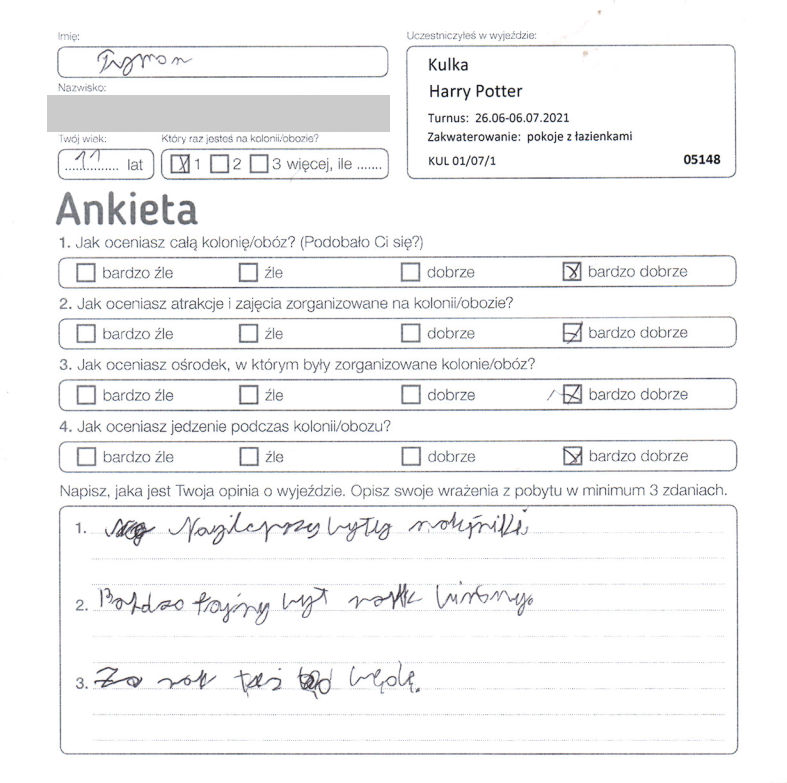 Imię:
Uczestniczyłeś w wyjeździe:
Tymon
Kulka
Harry Potter
Nazwisko:
Turnus: 26.06-06.07.2021
Zakwaterowanie: pokoje z łazienkami
Twój wiek:
Który raz jesteś na kolonii/obozie?
11 lat
1 2 3 więcej, ile .......
KUL 01/07/1 05148
Ankieta
1. Jak oceniasz całą kolonię/obóz? (Podobało Ci się?)
bardzo źle źle dobrze bardzo dobrze
2. Jak oceniasz atrakcje i zajęcia zorganizowane na kolonii/obozie?
bardzo źle źle dobrze bardzo dobrze
3. Jak oceniasz ośrodek, w którym były zorganizowane kolonie/obóz?
bardzo źle źle dobrze bardzo dobrze
4. Jak oceniasz jedzenie podczas kolonii/obozu?
bardzo źle źle dobrze bardzo dobrze
Napisz, jaka jest Twoja opinia o wyjeździe. Opisz swoje wrażenia z pobytu w minimum 3 zdaniach.
1. Najlepszy były
2. Bardzo fajny był park
3. Za rok też będę.